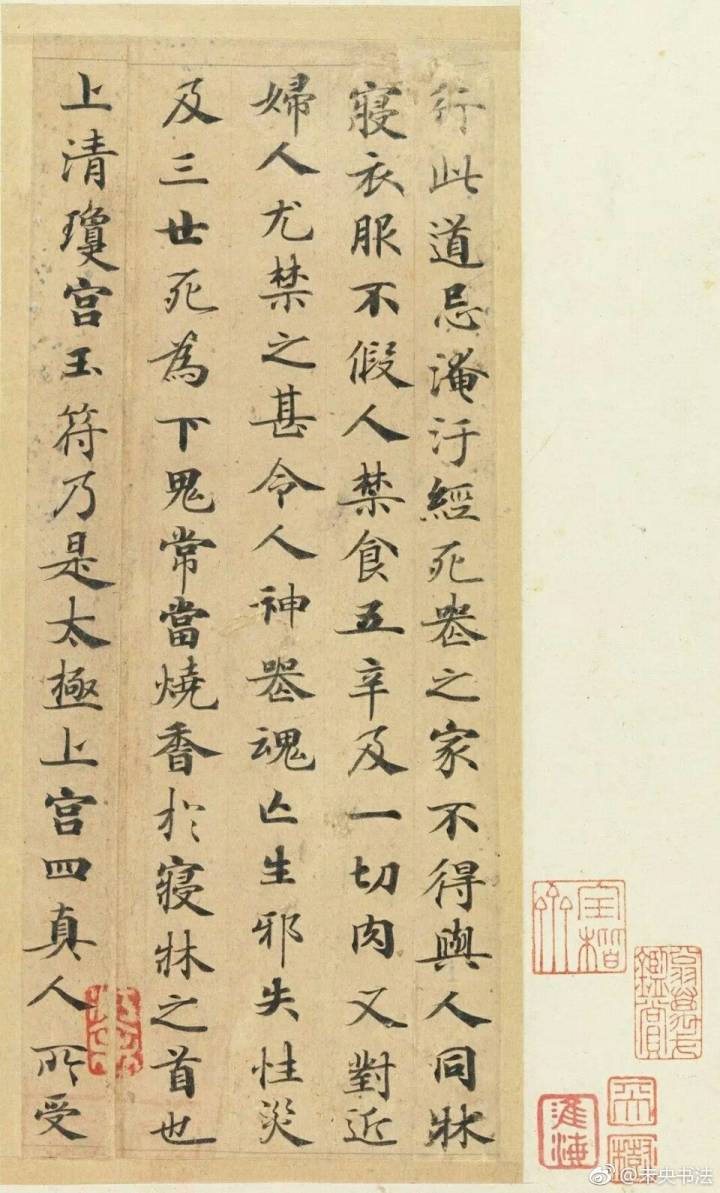 行此道忌淹汙經死喪之家不得與人同牀
寢衣服不假人禁食五辛及一切肉又對近
婦人尤禁之甚令人神喪魂亡生邪失性災
及三世死為下鬼常當燒香於寢牀之首也
上清瓊宮玉符乃是太極上宮四真人所受
鑑賞
@未央书法